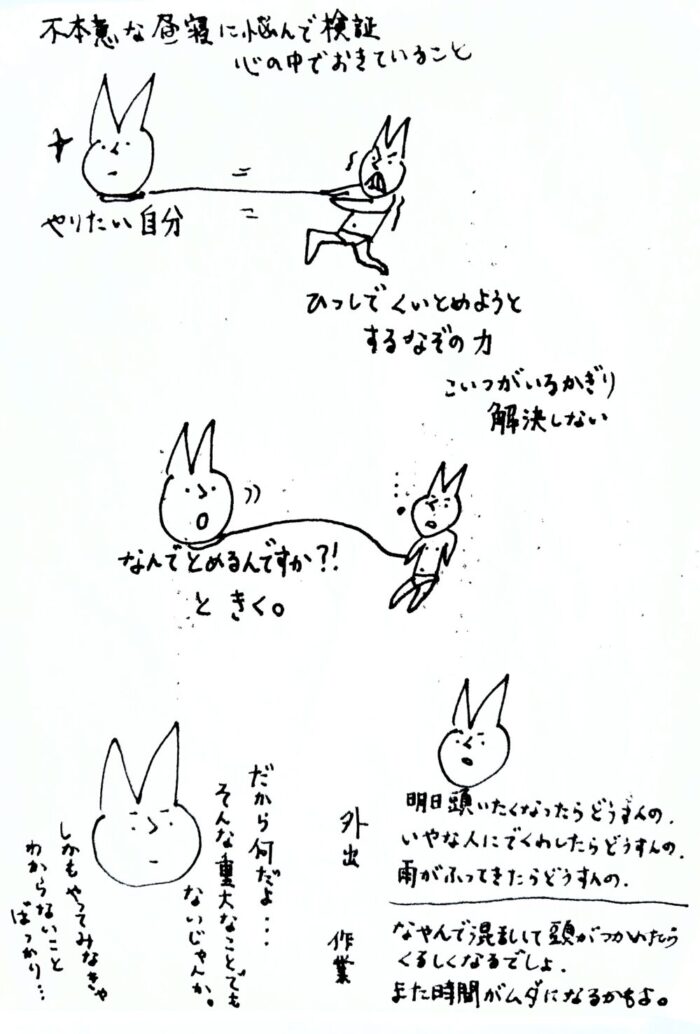 不本意な昼寝に悩んで検証
心の中でおきていること
やりたい自分
ひっしでくいとめようと
するなぞの力
こいつがいるかぎり
解決しない
なんでとめるんですか?!
ときく。
外出
明日頭いたくなったらどうすんの.
いやな人にでくわしたらどうすんの.
雨がふってきたらどうすんの.
作業
なやんで混乱して頭がつかれたら
くるしくなるでしょ.
また時間がムダになるかもよ。
だから何だよ・・・
そんな重大なことでも
ないじゃんか。
しかもやってみなきゃ
わからないこと
ばっかり…